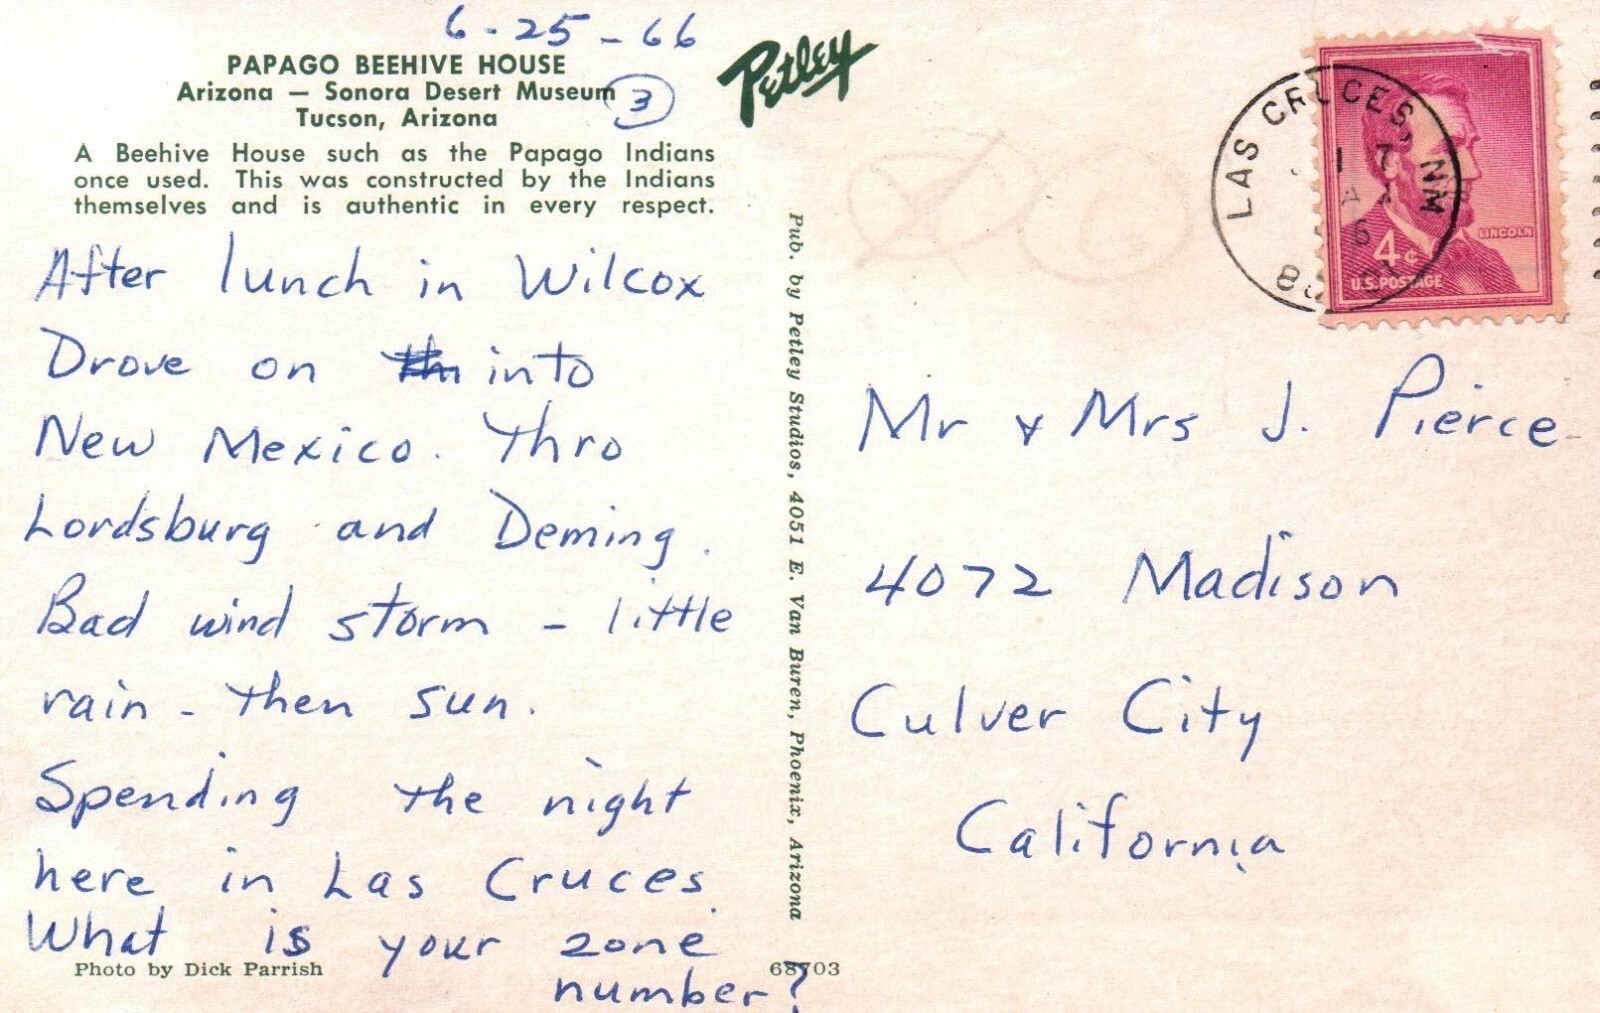 6-25-66
PAPAGO BEEHIVE HOUSE
Arizona — Sonora Desert Museum
3
Tucson, Arizona
A Beehive House such as the Papago Indians
once used. This was constructed by the Indians
themselves and is authentic in every respect.
After lunch in Wilcox
Drove on into
New Mexico. Thro
Lordsburg and Deming.
Bad wind storm - little
rain - then sun.
Spending the night
here in Las Cruces.
What is your zone
number?
Photo by Dick Parrish
68703
Petley
Pub. by Petley Studios, 4051 E. Van Buren, Phoenix, Arizona
LAS CRUCES, NM
LINCOLN
4¢
U.S. POSTAGE
Mr & Mrs J. Pierce
4072 Madison
Culver City
California